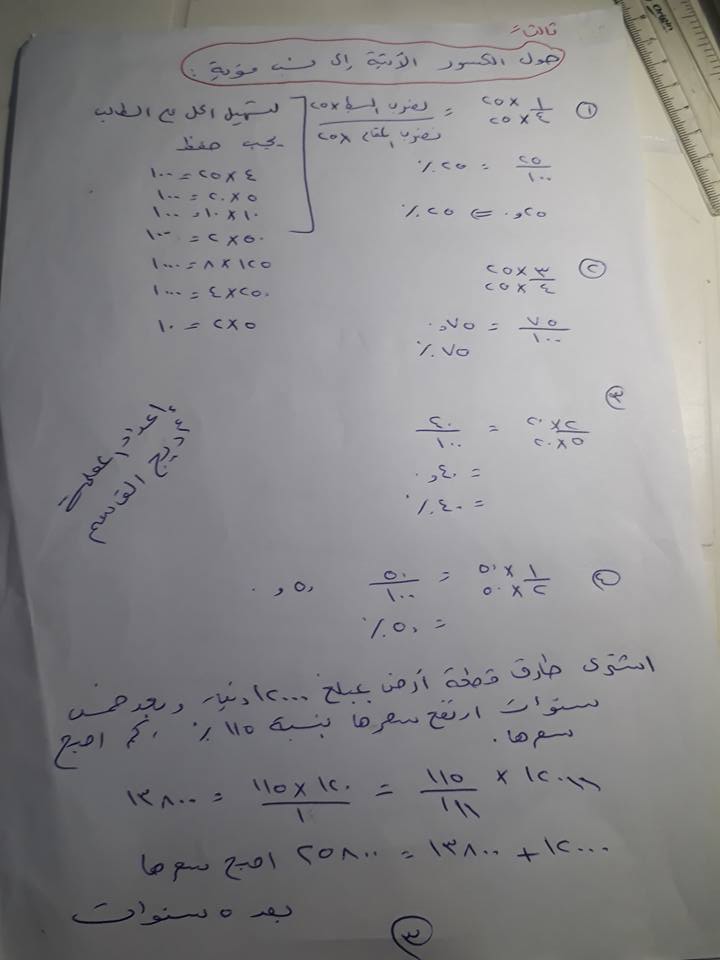 ثالث:
حول الكسور الآتية إلى نسب مئوية:
① ١/٤ × ٢٥/٢٥ = نضرب البسط × ٢٥ / نضرب المقام × ٢٥
٢٥/١٠٠ = ٢٥٪
٠,٢٥ => ٢٥٪
لتسهيل الحل مع الطالب
يجب حفظ
٤ × ٢٥ = ١٠٠
٥ × ٢٠ = ١٠٠
١٠ × ١٠ = ١٠٠
٥٠ × ٢ = ١٠٠
١٢٥ × ٨ = ١٠٠٠
٢٥٠ × ٤ = ١٠٠٠
٥ × ٢ = ١٠
② ٣/٤ × ٢٥/٢٥
٧٥/١٠٠ = ٠,٧٥
٧٥٪
③
٢/٥ × ٢٠/٢٠ = ٤٠/١٠٠
= ٠,٤٠
= ٤٠٪
إعداد المعلمة
أريج القاسم
④ ١/٢ × ٥٠/٥٠ = ٥٠/١٠٠ ٠,٥٠
= ٥٠٪
اشترى طارق قطعة أرض بمبلغ ١٢٠٠٠ دينار وبعد خمس
سنوات ارتفع سعرها بنسبة ١١٥٪ . كم اصبح
سعرها.
١٢٠٠٠ × ١١٥/١٠٠ = ١٢٠ × ١١٥/١ = ١٣٨٠٠
١٢٠٠٠ + ١٣٨٠٠ = ٢٥٨٠٠ اصبح سعرها
بعد ٥ سنوات
③
Origin